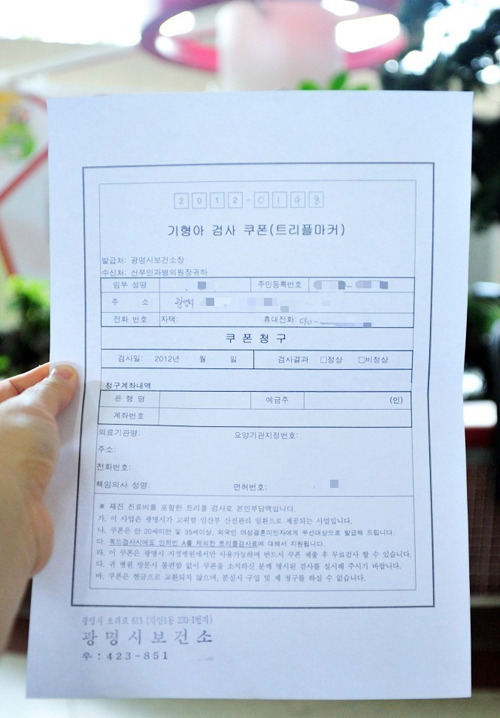 2012-0
기형아 검사 쿠폰(트리플마커)
발급처: 광명시보건소장
수신처: 산부인과병의원장귀하
임부 성명 주민등록번호
주 소 광명시
전화 번호 자택: 휴대전화: 010-
쿠 폰 청 구
검사일: 2012년 월 일 검사결과 □정상 □비정상
청구계좌내역
은 행 명 예금주 (인)
계좌번호
의료기관명: 요양기관지정번호:
주소:
전화번호:
책임의사 성명: 면허번호:
※ 재진 진료비를 포함한 트리플 검사로 본인부담액입니다.
가. 이 사업은 광명시가 고위험 임산부 산전관리 일환으로 제공되는 사업입니다.
나. 쿠폰은 만 20세미만 및 35세이상, 외국인 여성결혼이민자에게 우선대상으로 발급해 드립니다.
다. 쿼드검사시에도 인히빈 A를 제외한 트리플검사료에 대해서 지원됩니다.
라. 이 쿠폰은 광명시 지정병원에서만 사용가능하며 반드시 쿠폰 제출 후 무료검사 할 수 있습니다.
마. 귀 병원 방문시 불편함 없이 쿠폰을 소지하신 분께 명시된 검사를 실시해 주시기 바랍니다.
바. 쿠폰은 현금으로 교환되지 않으며, 분실시 구입 및 재 청구를 하실 수 없습니다.
광명시 오리로 613 (하안1동 230-1번지)
광명시보건소
우:423-851